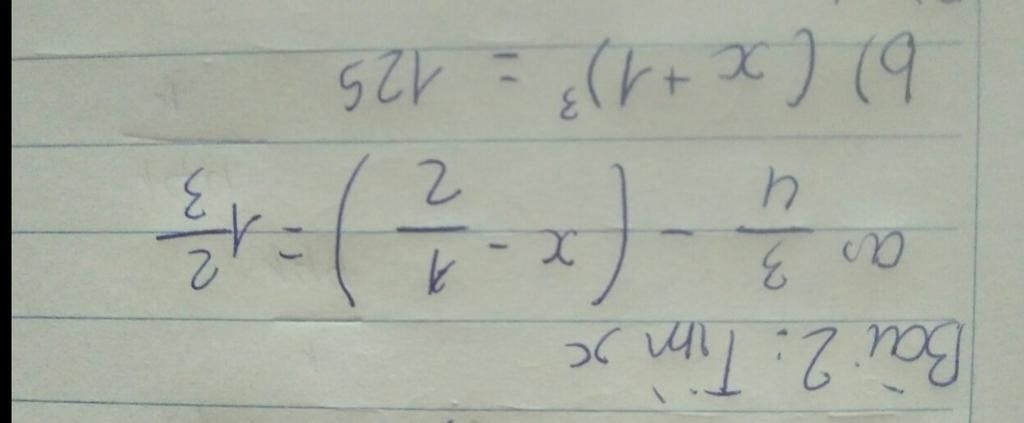 Bài 2: Tìm x
a) 3/4 - (x - 1/2) = 1 2/3
b) (x + 1)³ = 125